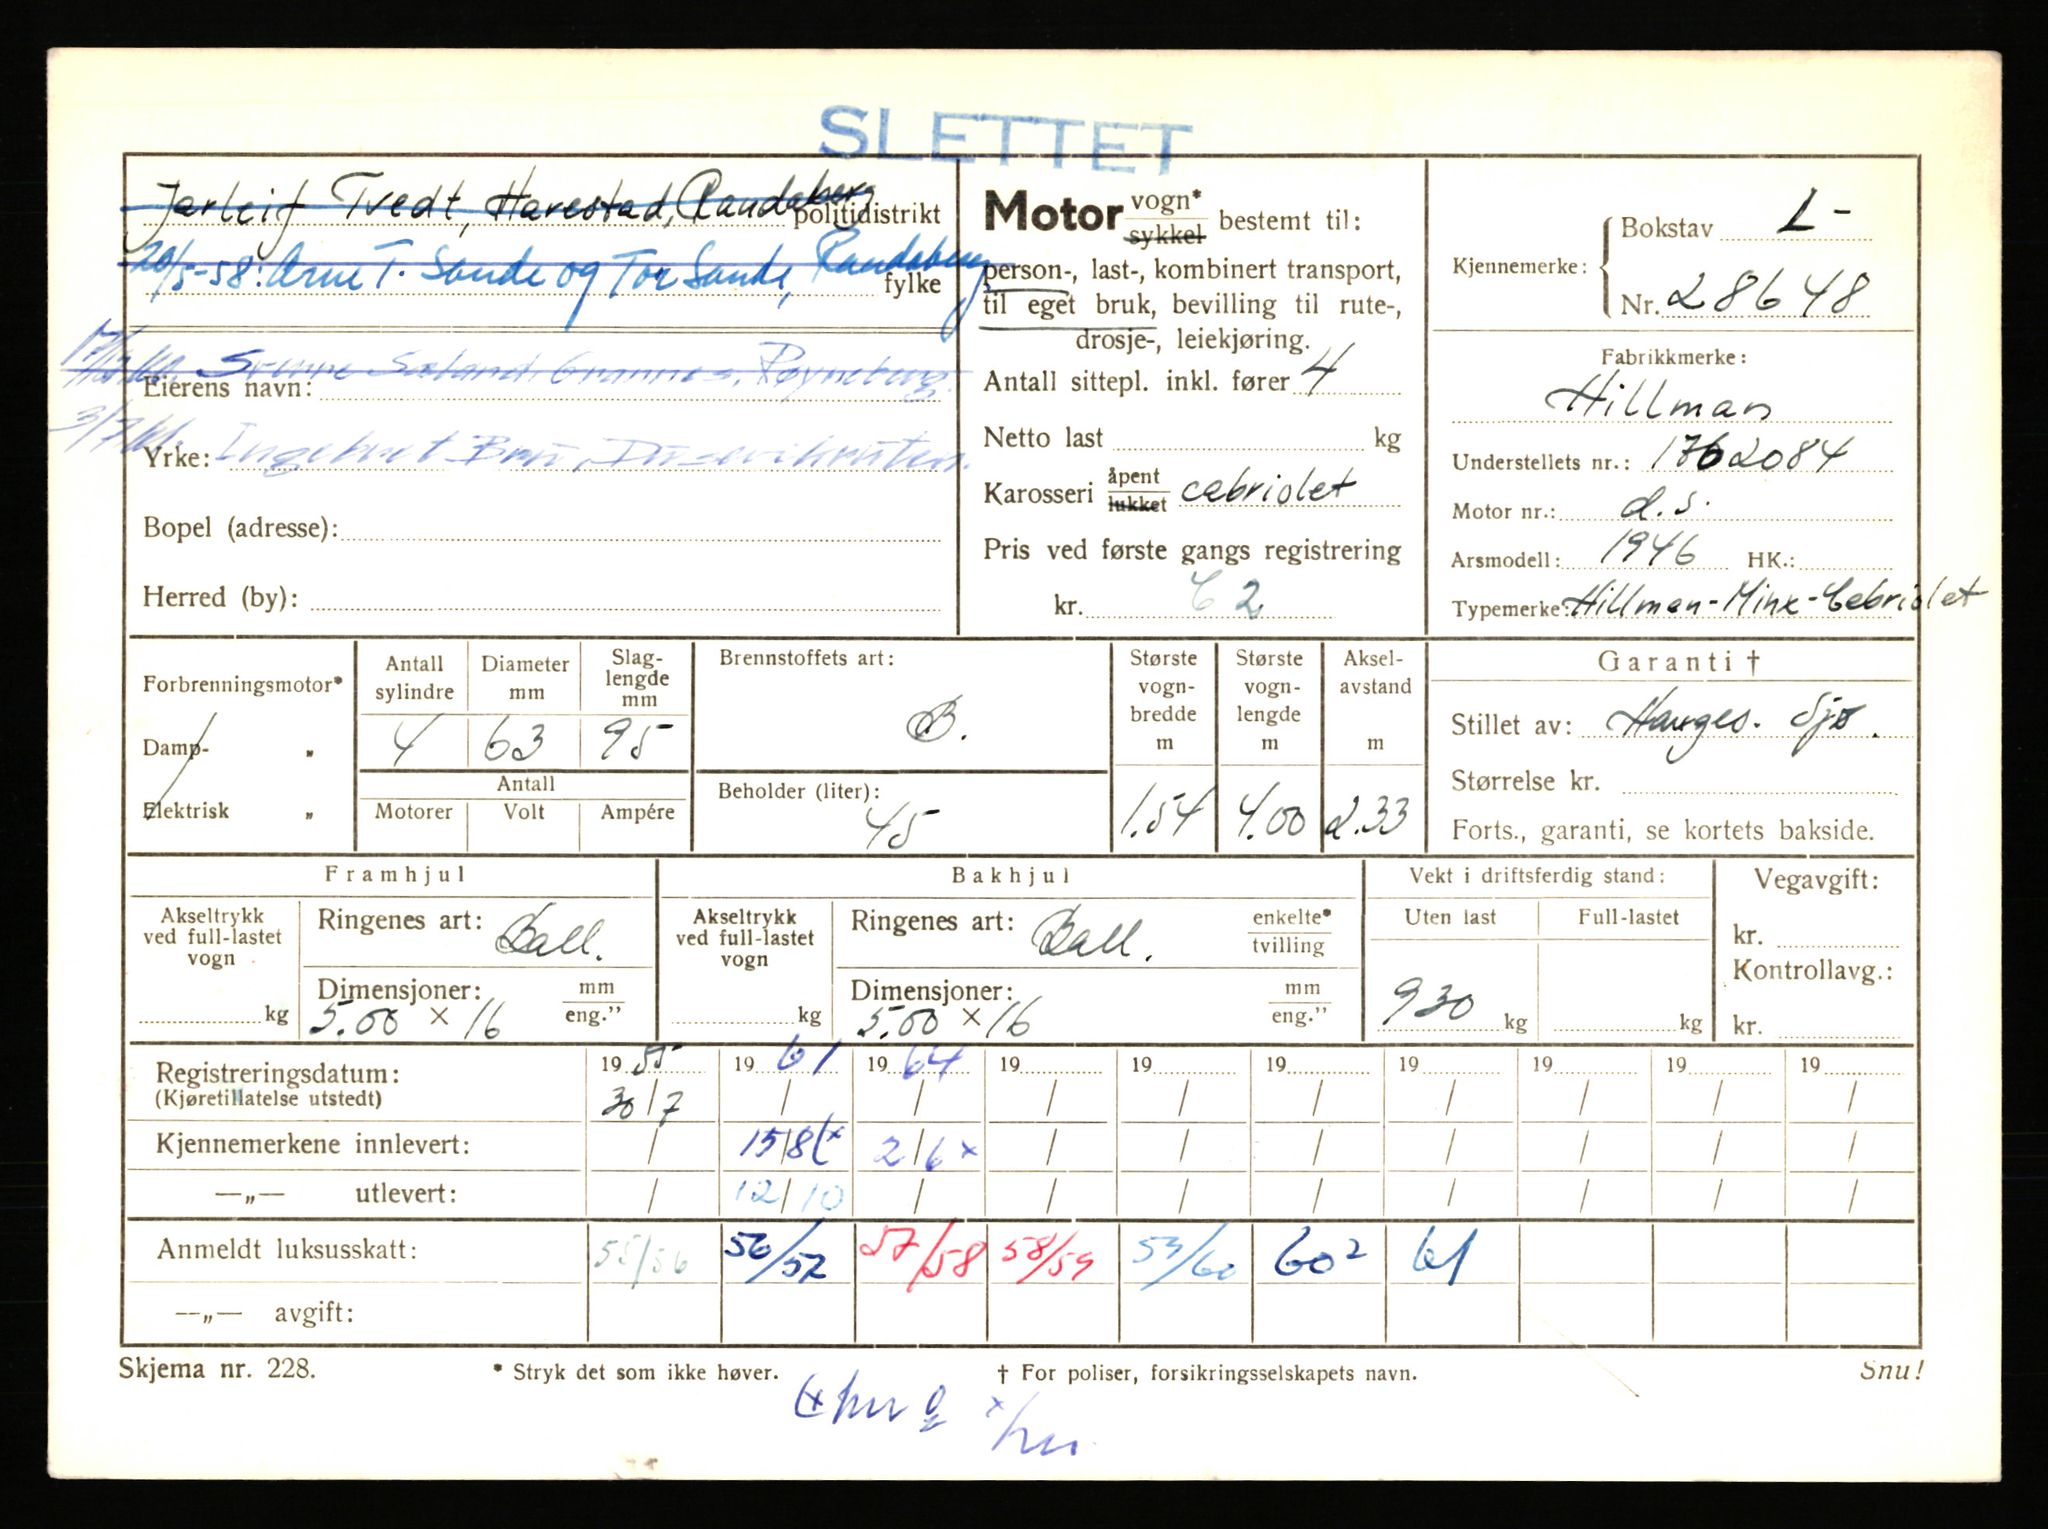 SLETTET
Jarleif Tvedt, Harestad, Randaberg politidistrikt
20/5-58: Arne T. Sande og Tor Sande, Randaberg fylke
Sæland Grannes, Røyneberg.
Eierens navn:
3/7
Yrke: Ingebret
Bopel (adresse):
Herred (by):
Motor vogn* sykkel bestemt til:
person-, last-, kombinert transport,
til eget bruk, bevilling til rute-,
drosje-, leiekjøring.
Antall sittepl. inkl. fører 4
Netto last kg
Karosseri åpent lukket cabriolet
Pris ved første gangs registrering
kr. 62
Kjennemerke: Bokstav L-
Nr. 28648
Fabrikkmerke:
Hillman
Understellets nr.: 1762084
Motor nr.: d.s.
Arsmodell: 1946 HK.:
Typemerke: Hillman-Minx-Cabriolet
Forbrenningsmotor*
Damp- „
Elektrisk „
Antall sylindre Diameter mm Slaglengde mm
4 63 95
Antall
Motorer Volt Ampére
Brennstoffets art:
B.
Beholder (liter):
45
Største vogn-bredde m 1.54
Største vogn-lengde m 4.00
Aksel-avstand m 2.33
Garanti †
Stillet av: Hauges. Sjø.
Størrelse kr.
Forts., garanti, se kortets bakside.
Framhjul
Akseltrykk ved full-lastet vogn
kg
Ringenes art: Ball.
Dimensjoner: mm eng."
5.00 × 16
Bakhjul
Akseltrykk ved full-lastet vogn
kg
Ringenes art: Ball. enkelte* tvilling
Dimensjoner: mm eng."
5.00 × 16
Vekt i driftsferdig stand:
Uten last Full-lastet
930 kg kg
Vegavgift:
kr.
Kontrollavg.:
kr.
Registreringsdatum: 1955 1961 1964 19 19 19 19 19 19 19
(Kjøretillatelse utstedt) 30/7 / / / / / / / / /
Kjennemerkene innlevert: / 15/8 2/6 × / / / / / / /
—„— utlevert: / 12/10 / / / / / / / /
Anmeldt luksusskatt: 55/56 56/57 57/58 58/59 59/60 60² 61
—„— avgift:
Skjema nr. 228. * Stryk det som ikke høver. † For poliser, forsikringsselskapets navn. Snu!